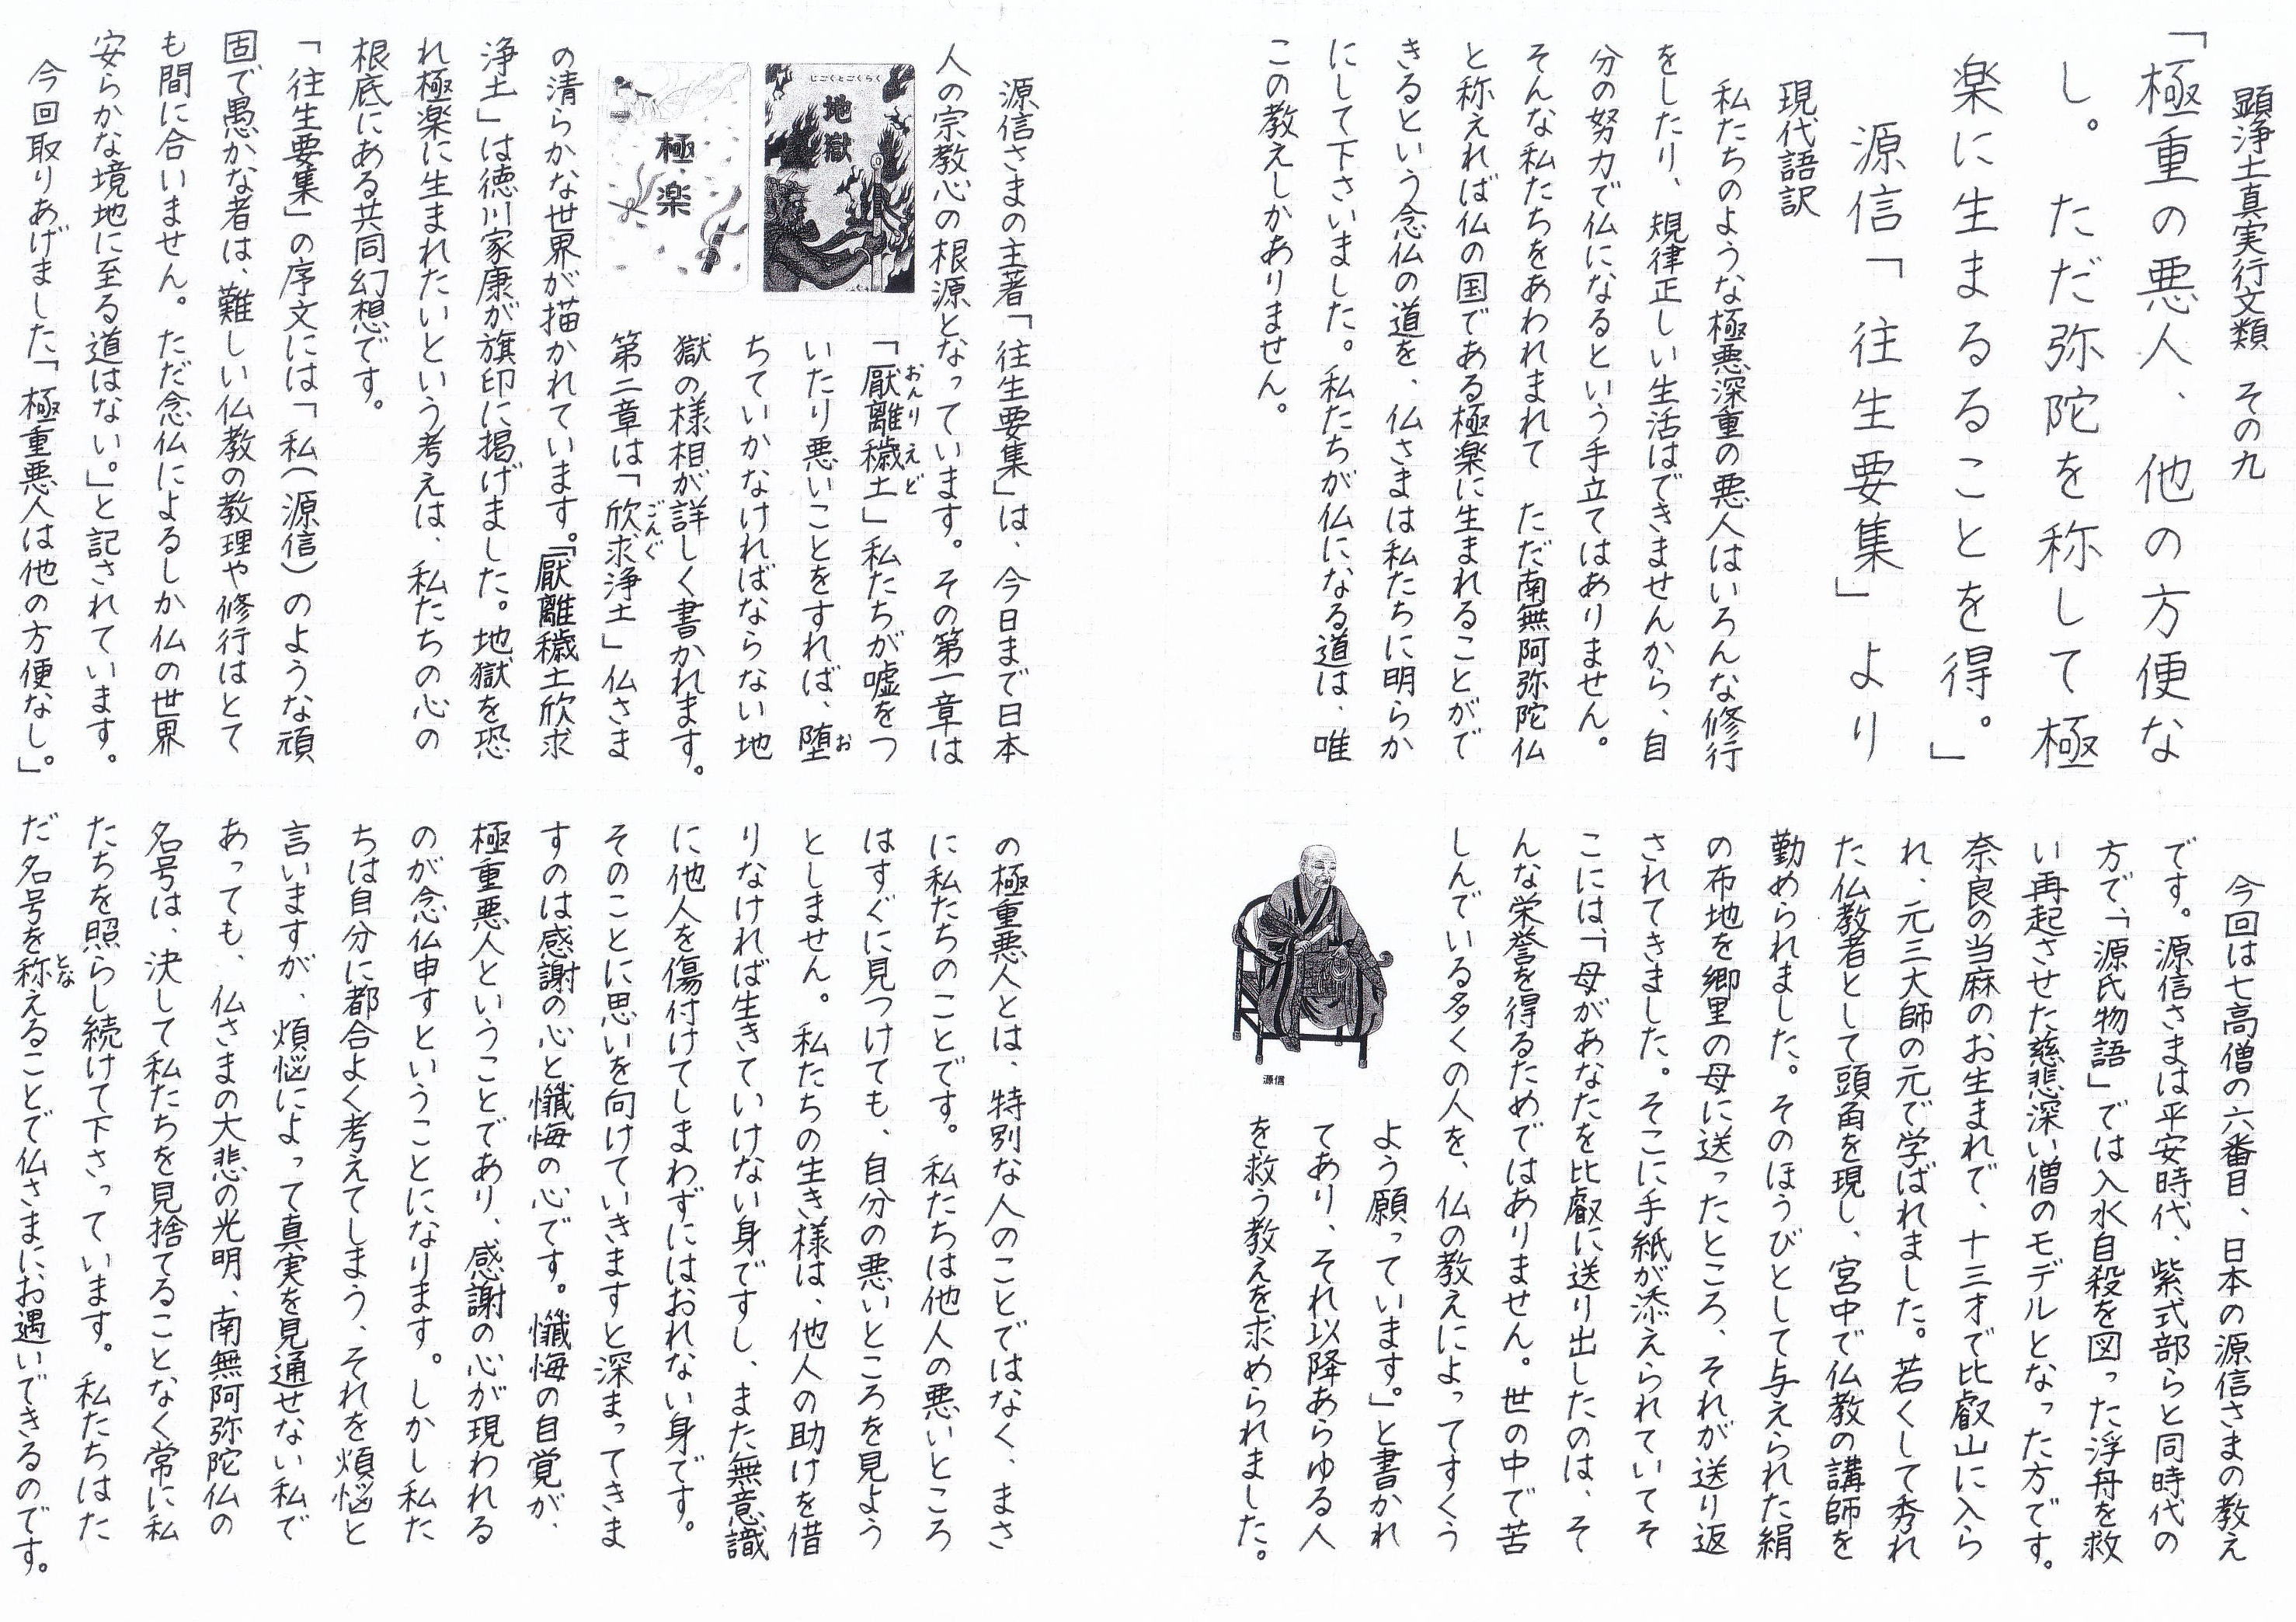 顕浄土真実行文類　その九
「極重の悪人、他の方便な
し。　ただ弥陀を称して極
楽に生まるることを得。」
源信「往生要集」より
現代語訳
私たちのような極悪深重の悪人はいろんな修行
をしたり、規律正しい生活はできませんから、自
分の努力で仏になるという手立てはありません。
そんな私たちをあわれまれて　ただ南無阿弥陀仏
と称えれば仏の国である極楽に生まれることがで
きるという念仏の道を、仏さまは私たちに明らか
にして下さいました。私たちが仏になる道は、唯
この教えしかありません。
今回は七高僧の六番目、日本の源信さまの教え
です。源信さまは平安時代、紫式部らと同時代の
方で、「源氏物語」では入水自殺を図った浮舟を救
い再起させた慈悲深い僧のモデルとなった方です。
奈良の当麻のお生まれで、十三才で比叡山に入ら
れ、元三大師の元で学ばれました。若くして秀れ
た仏教者として頭角を現し、宮中で仏教の講師を
勤められました。そのほうびとして与えられた絹
の布地を郷里の母に送ったところ、それが送り返
されてきました。そこに手紙が添えられていてそ
こには、「母があなたを比叡に送り出したのは、そ
んな栄誉を得るためではありません。世の中で苦
しんでいる多くの人を、仏の教えによってすくう
よう願っています。」と書かれ
てあり、それ以降あらゆる人
を救う教えを求められました。
源信
源信さまの主著「往生要集」は、今日まで日本
人の宗教心の根源となっています。その第一章は
「厭離穢土」私たちが嘘をつ
おんりえど
いたり悪いことをすれば、堕
お
ちていかなければならない地
獄の様相が詳しく書かれます。
第二章は「欣求浄土」仏さま
ごんぐ
の清らかな世界が描かれています。「厭離穢土欣求
浄土」は徳川家康が旗印に掲げました。地獄を恐
れ極楽に生まれたいという考えは、私たちの心の
根底にある共同幻想です。
じごくとごくらく
地獄
極楽
「往生要集」の序文には「私（源信）のような頑
固で愚かな者は、難しい仏教の教理や修行はとて
も間に合いません。ただ念仏によるしか仏の世界
安らかな境地に至る道はない。」と記されています。
今回取りあげました「極重悪人は他の方便なし。」
の極重悪人とは、特別な人のことではなく、まさ
に私たちのことです。私たちは他人の悪いところ
はすぐに見つけても、自分の悪いところを見よう
としません。私たちの生き様は、他人の助けを借
りなければ生きていけない身ですし、また無意識
に他人を傷付けてしまわずにはおれない身です。
そのことに思いを向けていきますと深まってきま
すのは感謝の心と懺悔の心です。懺悔の自覚が、
極重悪人ということであり、感謝の心が現われる
のが念仏申すということになります。しかし私た
ちは自分に都合よく考えてしまう、それを煩悩と
言いますが、煩悩によって真実を見通せない私で
あっても、仏さまの大悲の光明、南無阿弥陀仏の
名号は、決して私たちを見捨てることなく常に私
たちを照らし続けて下さっています。私たちはた
だ名号を称えることで仏さまにお遇いできるのです。
とな